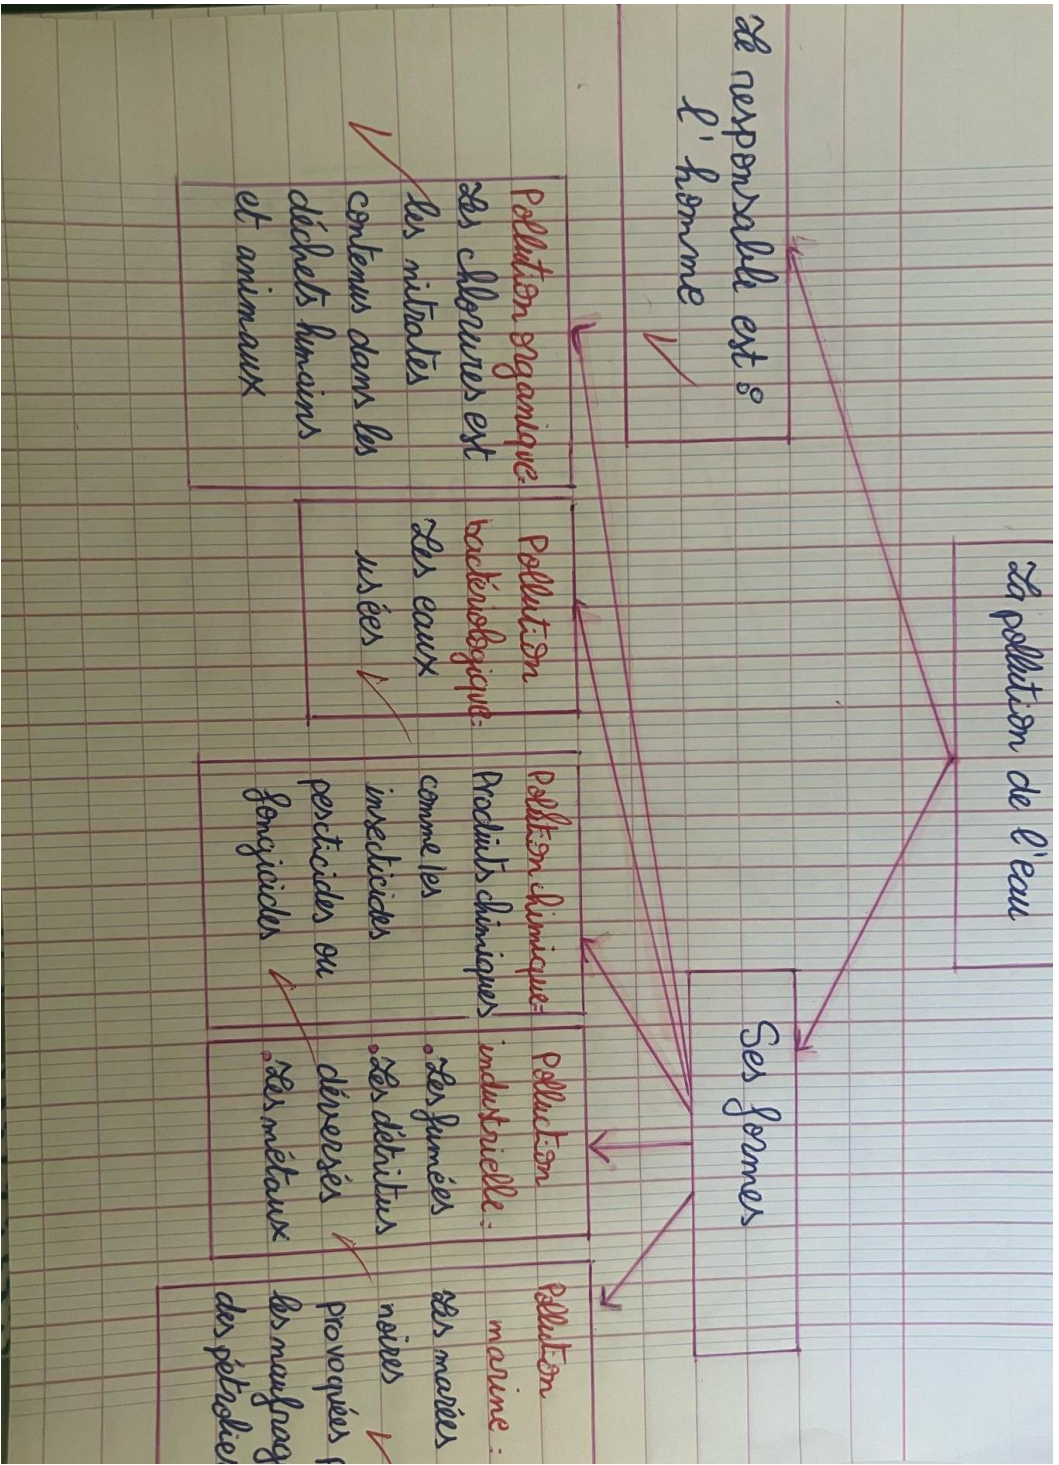 La pollution de l'eau
Le responsable est :
l'homme
Ses formes
Pollution organique:
Les chlorures est
les nitrates
contenus dans les
déchets humains
et animaux
Pollution
bactériologique:
Les eaux
usées
Pollution chimique:
Produits chimiques
comme les
insecticides
pescticides ou
fongicides
Polluction
industrielle:
.Les fumées
.Les détritus
déversés
.Les métaux
Pollution
marine:
Les marées
noires
provoquées
les
des